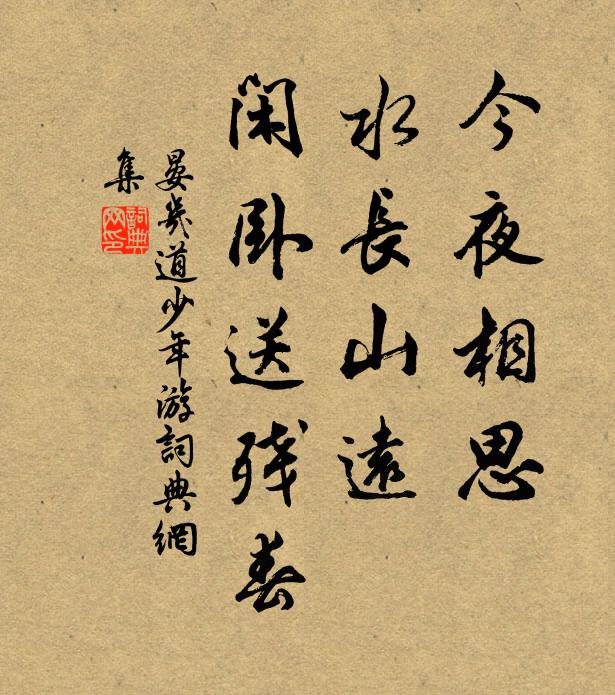 今夜相思
水長山遠
閑卧送残春
晏幾道少年游詞典網
集
詞典網印